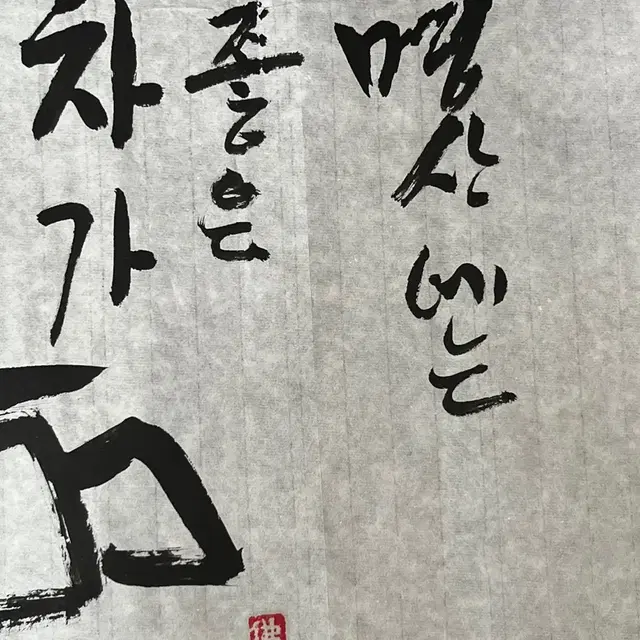 명산에는
좋은
차가